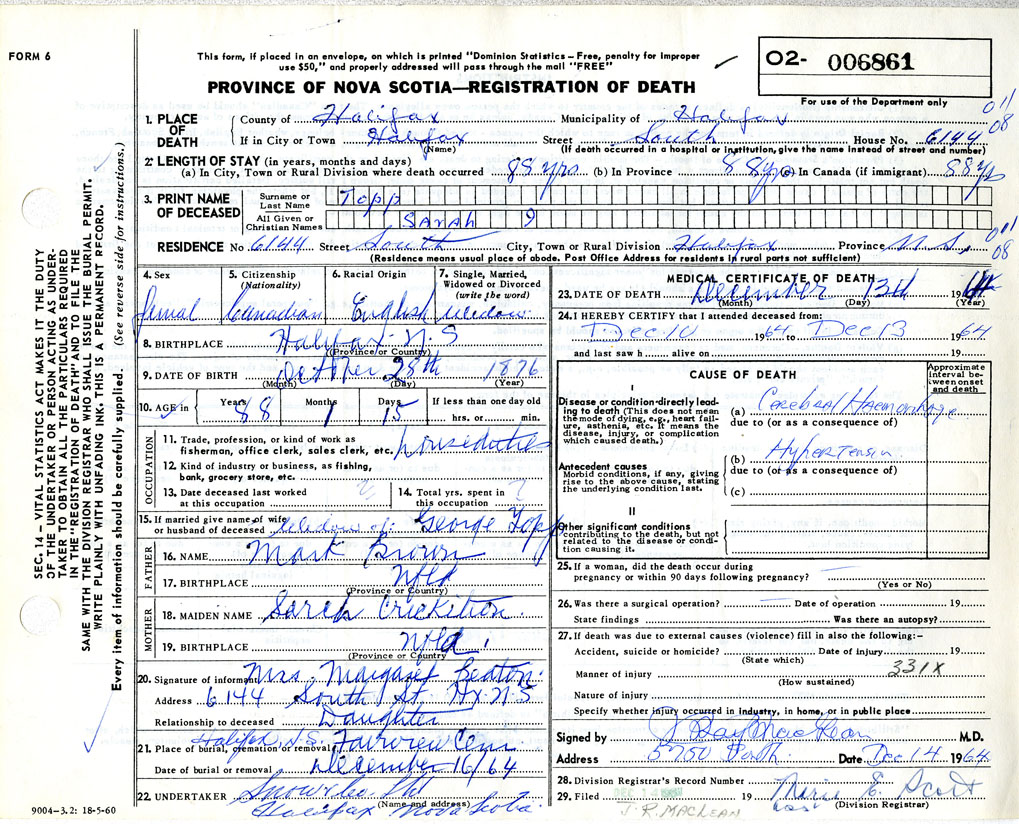 FORM 6
This form, if placed in an envelope, on which is printed "Dominion Statistics—Free, penalty for improper
use $50," and properly addressed will pass through the mail "FREE"
PROVINCE OF NOVA SCOTIA—REGISTRATION OF DEATH
O2- 006861
For use of the Department only
011
08
1. PLACE OF DEATH
County of Halifax Municipality of Halifax
If in City or Town Halifax Street South House No. 6144
(Name) (If death occurred in a hospital or institution, give the name instead of street and number)
2. LENGTH OF STAY (in years, months and days)
(a) In City, Town or Rural Division where death occurred 88 yrs (b) In Province 88 yrs (c) In Canada (if immigrant) 88 yrs
3. PRINT NAME OF DECEASED
Surname or Last Name Topp
All Given or Christian Names SARAh 9
RESIDENCE No 6144 Street South City, Town or Rural Division Halifax Province N.S,
011
08
(Residence means usual place of abode. Post Office Address for residents in rural parts not sufficient)
4. Sex
Femal
5. Citizenship
(Nationality)
Canadian
6. Racial Origin
English
7. Single, Married,
Widowed or Divorced
(write the word)
Widow
8. BIRTHPLACE Halifax N.S
(Province or Country)
9. DATE OF BIRTH October 28th 1876
(Month) (Day) (Year)
10. AGE in Years 88 Months 1 Days 15 If less than one day old
hrs. or min.
OCCUPATION
11. Trade, profession, or kind of work as
fisherman, office clerk, sales clerk, etc. houseduties
12. Kind of industry or business, as fishing,
bank, grocery store, etc.
13. Date deceased last worked
at this occupation ?
14. Total yrs. spent in
this occupation ?
15. If married give name of wife
or husband of deceased Widow of: George Topp
FATHER
16. NAME Mark Brown
17. BIRTHPLACE Nfld
(Province or Country)
MOTHER
18. MAIDEN NAME Sarah
19. BIRTHPLACE Nfld,
(Province or Country)
20. Signature of informant Mrs. Margaret Beaton
Address 6144 South St Hx. N.S
Relationship to deceased Daughter
21. Place of burial, cremation or removal Halifax, N.S. Fairview Cem
Date of burial or removal December 16/64
22. UNDERTAKER Snow & Co. Ltd
(Name and address)
Halifax Nova Scotia
9004-3.2: 18-5-60
MEDICAL CERTIFICATE OF DEATH
23. DATE OF DEATH December 13th 1964
(Month) (Day) (Year)
24. I HEREBY CERTIFY that I attended deceased from:
Dec 10 1964 to Dec 13 1964
and last saw h alive on 19
CAUSE OF DEATH
Approximate interval between onset and death
I
Disease or condition directly leading to death (This does not mean the mode of dying, e.g., heart failure, asthenia, etc. It means the disease, injury, or complication which caused death.)
(a) Cerebral Haemorrhage
due to (or as a consequence of)
Antecedent causes
Morbid conditions, if any, giving rise to the above cause, stating the underlying condition last.
(b) Hypertension
due to (or as a consequence of)
(c)
II
Other significant conditions
contributing to the death, but not related to the disease or condition causing it.
25. If a woman, did the death occur during
pregnancy or within 90 days following pregnancy? —
(Yes or No)
26. Was there a surgical operation? — Date of operation 19
State findings Was there an autopsy?
27. If death was due to external causes (violence) fill in also the following:—
Accident, suicide or homicide? Date of injury 19
(State which)
Manner of injury 331X
(How sustained)
Nature of injury
Specify whether injury occurred in industry, in home, or in public place
Signed by J Ray MacLean M.D.
Address 5750 South Date Dec 14 1964
28. Division Registrar's Record Number
29. Filed DEC 14 19 Marie E. Scott
(Division Registrar)
J. R. MACLEAN
SEC. 14—VITAL STATISTICS ACT MAKES IT THE DUTY
OF THE UNDERTAKER OR PERSON ACTING AS UNDER-
TAKER TO OBTAIN ALL THE PARTICULARS REQUIRED
IN THE "REGISTRATION OF DEATH" AND TO FILE THE
SAME WITH THE DIVISION REGISTRAR WHO SHALL ISSUE THE BURIAL PERMIT.
WRITE PLAINLY WITH UNFADING INK. THIS IS A PERMANENT RECORD.
Every item of information should be carefully supplied. (See reverse side for instructions.)